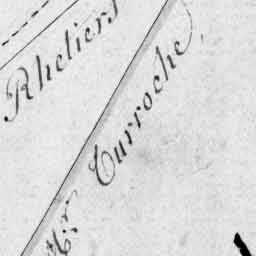 Rhetiers
Curroche,